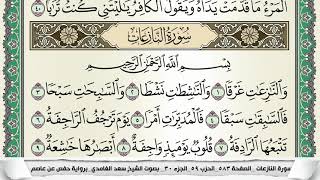 ٱلْمَرْءُ مَا قَدَّمَتْ يَدَاهُ وَيَقُولُ ٱلْكَافِرُ يَٰلَيْتَنِى كُنتُ تُرَٰبًۢا ٤٠
سُورَةُ النَّازِعَاتِ
بِسْمِ ٱللَّهِ ٱلرَّحْمَٰنِ ٱلرَّحِيمِ
وَٱلنَّٰزِعَٰتِ غَرْقًا ١ وَٱلنَّٰشِطَٰتِ نَشْطًا ٢ وَٱلسَّٰبِحَٰتِ سَبْحًا ٣
فَٱلسَّٰبِقَٰتِ سَبْقًا ٤ فَٱلْمُدَبِّرَٰتِ أَمْرًا ٥ يَوْمَ تَرْجُفُ ٱلرَّاجِفَةُ ٦
تَتْبَعُهَا ٱلرَّادِفَةُ ٧ قُلُوبٌ يَوْمَئِذٍ وَاجِفَةٌ ٨ أَبْصَٰرُهَا خَٰشِعَةٌ ٩
سورة النازعات الصفحة ٥٨٣ الحزب ٥٩ الجزء ٣٠ بصوت الشيخ سعد الغامدي برواية حفص عن عاصم